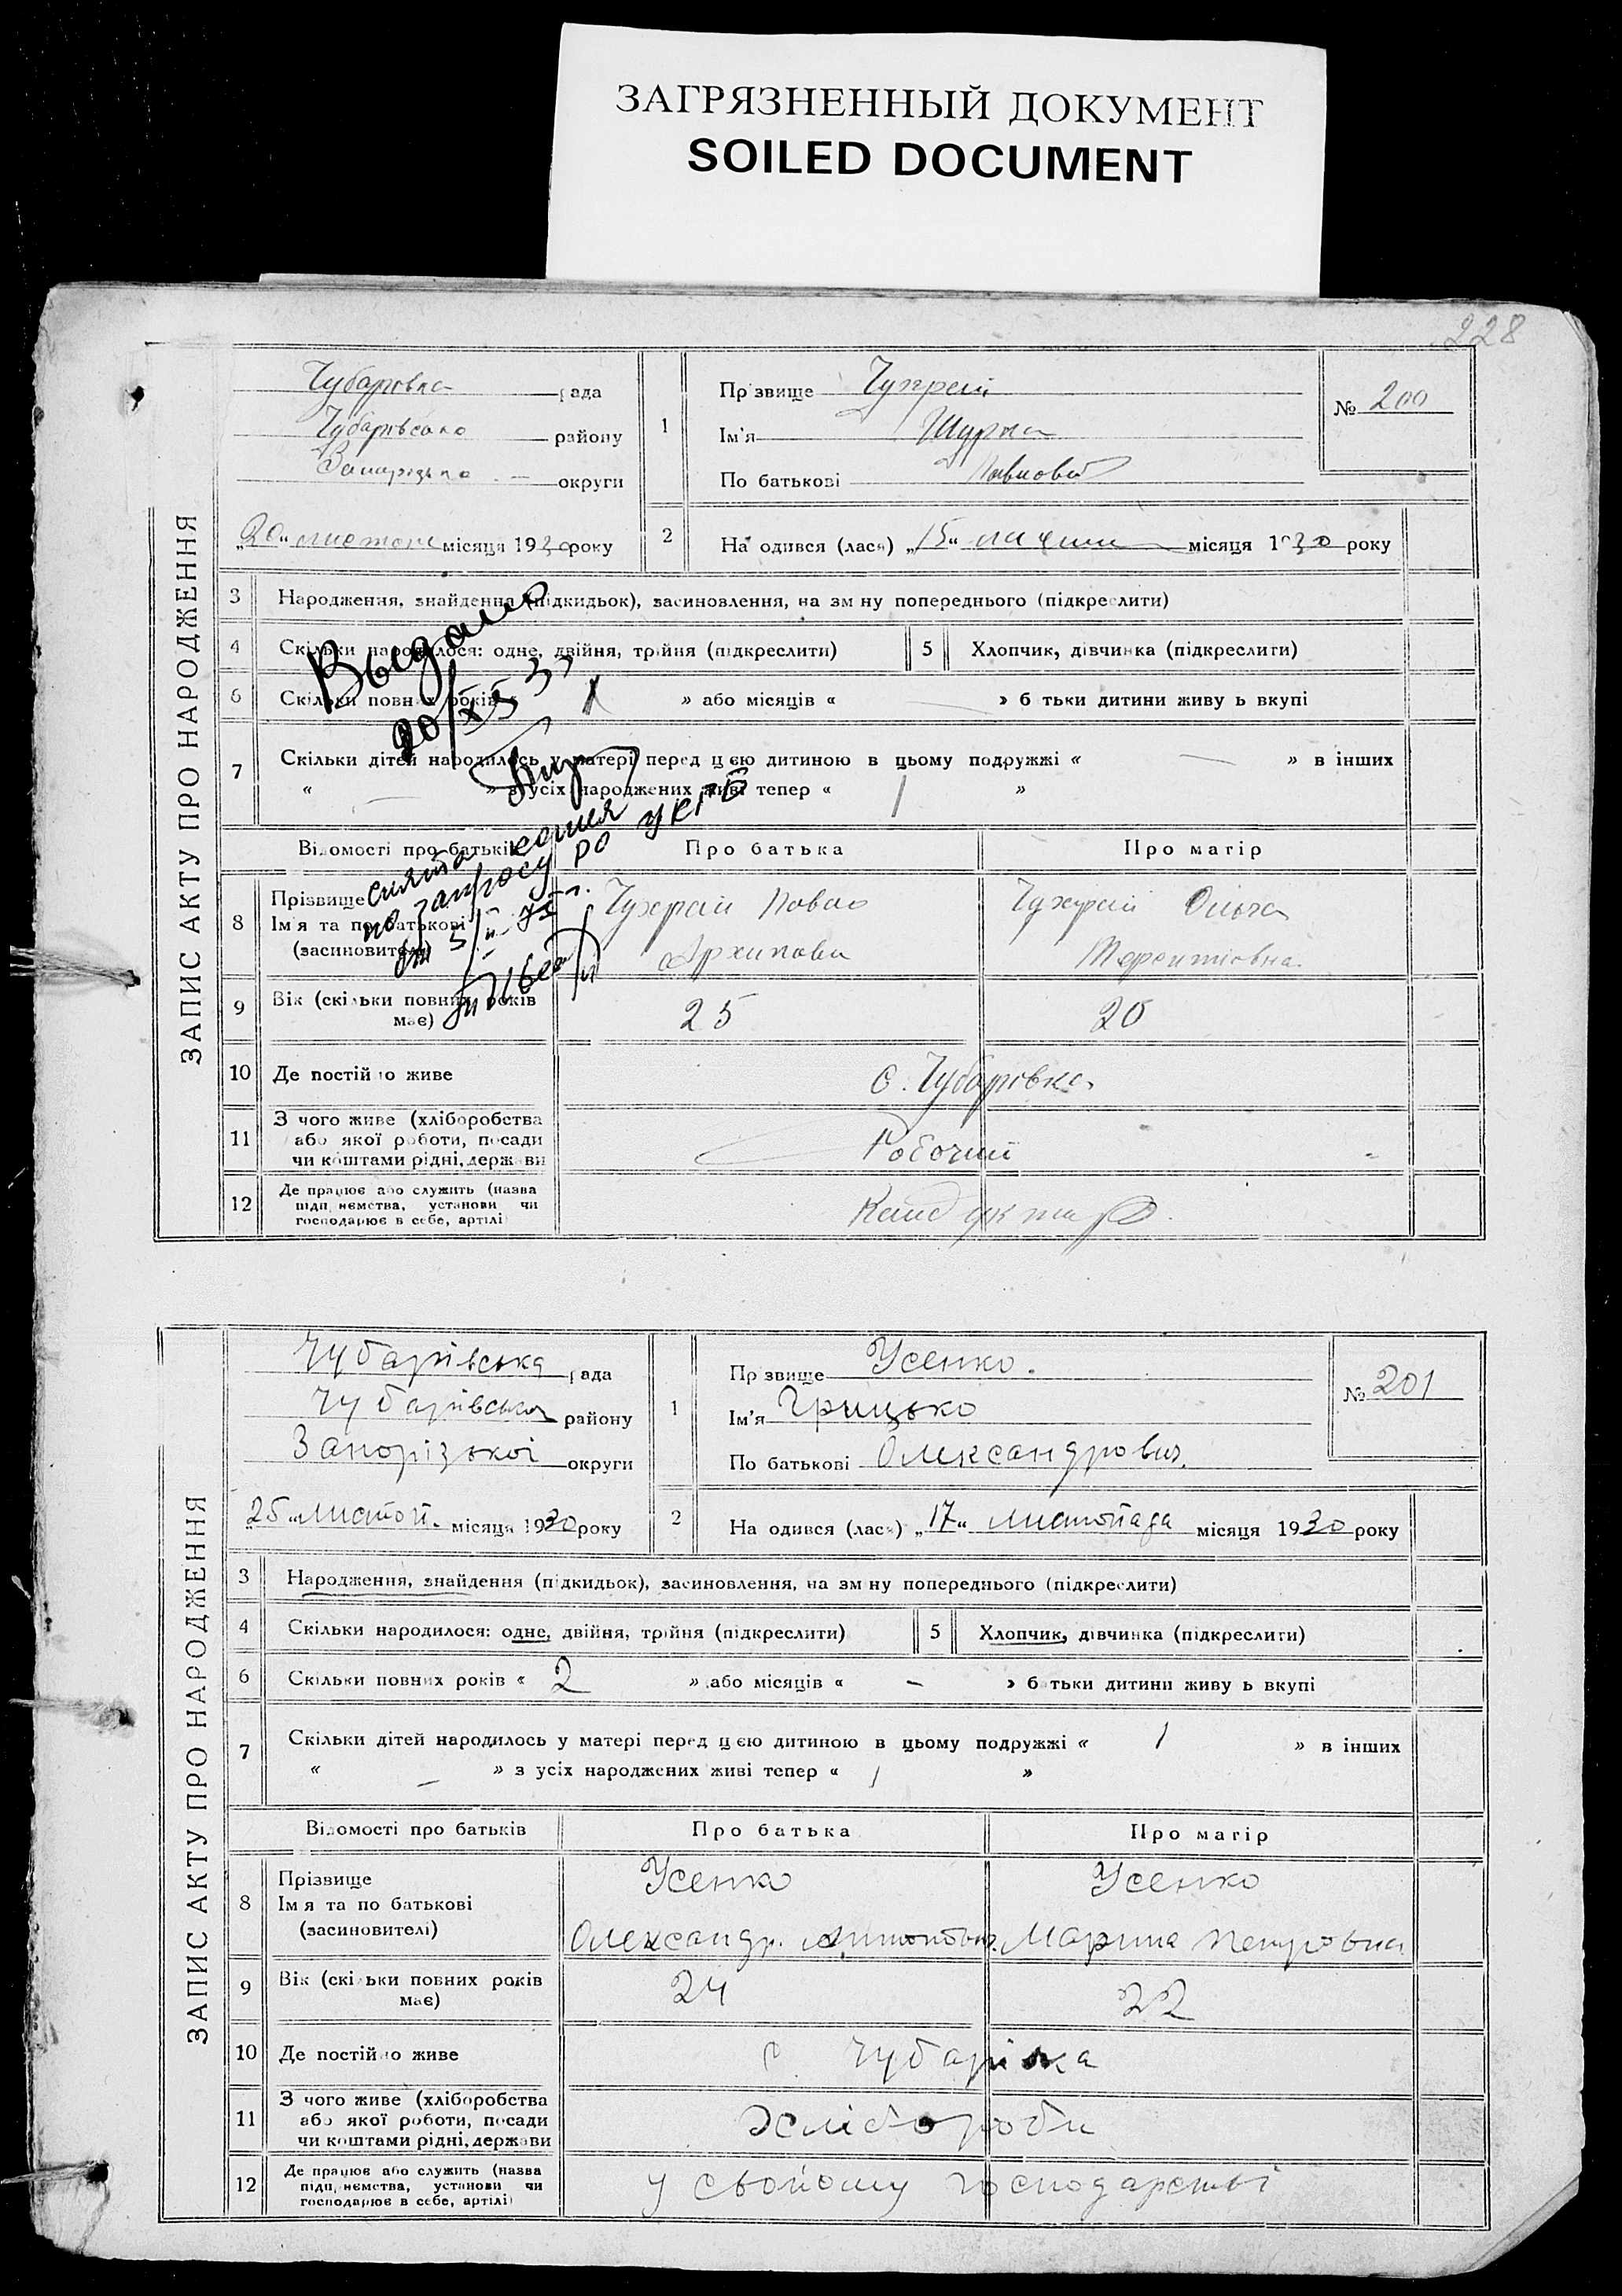 ЗАГРЯЗНЕННЫЙ ДОКУМЕНТ
SOILED DOCUMENT
228
ЗАПИС АКТУ ПРО НАРОДЖЕННЯ
Чубаровка рада
району
округи
„20“ листоп місяця 1930 року
1
Прізвище Чухрай
Ім'я Шурка
По батькові
№ 200
2 На одився (лася) „15“ місяця 1930 року
3 Народження, знайдення (підкидьок), засиновлення, на зм ну попереднього (підкреслити)
4 Скільки народилося: одне, двійня, трійня (підкреслити) 5 Хлопчик, дівчинка (підкреслити)
6 Скільки повних років « 1 » або місяців « — » б тьки дитини живу ь вкупі
7 Скільки дітей народилось у матері перед цією дитиною в цьому подружжі « — » в інших
« — » з усіх народжених живі тепер « 1 »
Выдано
20/XI 53
снята копия
по запросу РО УКГБ
от 5/II-75 г.
Відомості про батьків Про батька Про матір
8 Прізвище
Ім'я та по батькові
(засиновителі)
Чухрай Павло
Архипови
Чухрай Ольга
Терентіовна
9 Вік (скільки повних років
має) 25 20
10 Де постійно живе с. Чубаровка
11 З чого живе (хліборобства
або якої роботи, посади
чи коштами рідні, держави
Робочий
12 Де працює або служить (назва
підп, немства, установи чи
господарює в себе, артілі)
Кандуктар
ЗАПИС АКТУ ПРО НАРОДЖЕННЯ
Чубарівська рада
Чубарівська району
Запорізької округи
„25“ листоп. місяця 1930 року
1
Пр звище Усенко.
Ім'я Грицько
По батькові Олександрович.
№ 201
2 На одився (лася) „17“ листопада місяця 1930 року
3 Народження, знайдення (підкидьок), засиновлення, на зм ну попереднього (підкреслити)
4 Скільки народилося: одне, двійня, трійня (підкреслити) 5 Хлопчик, дівчинка (підкреслити)
6 Скільки повних років « 2 » або місяців « — » б тьки дитини живу ь вкупі
7 Скільки дітей народилось у матері перед цією дитиною в цьому подружжі « 1 » в інших
« — » з усіх народжених живі тепер « 1 »
Відомості про батьків Про батька Про матір
8 Прізвище
Ім'я та по батькові
(засиновителі)
Усенко
Олександр.
Усенко
Марина Петровна
9 Вік (скі ьки повних років
має) 24 22
10 Де постійно живе с. Чубарівка
11 З чого живе (хліборобства
або якої роботи, посади
чи коштами рідні, держави
Хлібороби
12 Де працює або служить (назва
підп, немства, установи чи
господарює в себе, артілі)
у свойому господарстві